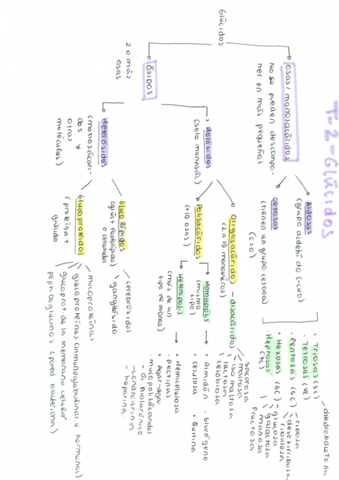 T-2-Glúcidos
Glúcidos
osas / monosacáridos
No se pueden descompo-
ner en más pequeños
Aldosas
(grupo aldehído (CHO)
cetosas
(tienen un grupo cetona)
(C=O)
• Triosas (3C)
• Tetrosas (4C)
• Pentosas (5C)
ribosa
desoxirribosa
ribulosa
• Hexosas (6C)
glucosa
galactosa
manosa
fructosa
• Heptosas
(7C)
ósidos
2 o más
osas
Holósidos
(solo monosac)
Oligosacáridos
(2 a 10 monómeros)
disacáridos
sacarosa
maltosa
isomaltosa
lactosa
celobiosa
Polisacáridos
(>10 osas)
Homopolis
(mismo
tipo)
• almidón
• glucógeno
• celulosa
• quitina
Heteropolis
(más de un
tipo de monos)
• Hemicelulosa
• pectinas
• Agar-Agar
• mucopolisacáridos
- á. hialurónico
- condroitina
- Heparina
Heterósidos
(monosácar-
dos y
otras
moléculas)
Glucolípidos
o ceramida
cerebrósidos
gangliósido
Glucoproteidos
(proteína +
glúcido
mucoproteínas
glucoproteínas (inmunoglobulinas y hormonas)
glucoprot de la membrana celular
peptidoglucanos (pared bacteriana)